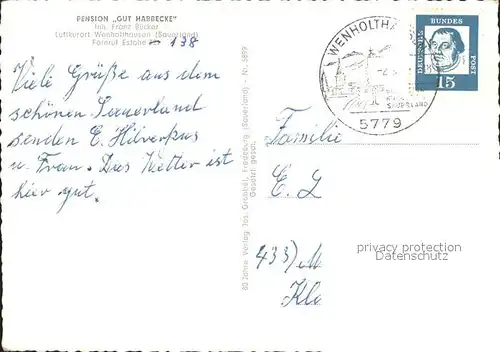 PENSION „GUT HABBECKE"
Inh. Franz Bücker
Luftkurort Wenholthausen (Sauerland)
Fernruf Eslohe 138
Viele Grüße aus dem
schönen Sauerland
senden E. Hilverkus
u. Frau. Das Wetter ist
hier gut.
80 Jahre Verlag Jos. Grobbel, Fredeburg (Sauerland) - Nr. 5899
Gesetzl. gesch.
WENHOLTHA
SAUERLAND
5779
DEUTSCHE
BUNDES
POST
15
Familie
E. L
433) M
Klo
privacy protection
Datenschutz